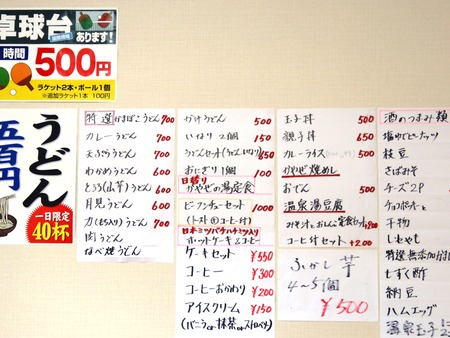 卓球台
あります!
時間 500円
ラケット2本・ボール1個
※追加ラケット1本 100円
うどん
五百円
一日限定
40杯
特選 かまぼこうどん 700
カレーうどん 700
天ぷらうどん 700
わかめうどん 600
とろろ(山芋)うどん 600
月見うどん 600
力(もち入り)うどん 700
肉うどん
なべ焼うどん
かけうどん 500
いなり 2個 150
うどんセット(うどん、いなり) 650
おにぎり1個 100
日替り
かやぜの湯定食
ビーフンチャーセット 1000
(トースト コーヒー付)
日本ミツバチハチミツ入り
ホットケーキとコーヒー
ケーキセット ¥550
コーヒー ¥300
コーヒーおかわり ¥200
アイスクリーム ¥150
(バニラor抹茶orストロベリ)
玉子丼 500
親子丼 650
カレーライス 500
かやぜ焼めし
おでん 500
温泉湯豆腐
みそ汁とおしんこ定食セット +200
コーヒー付セット +200
ふかし芋
4~5個
¥500
酒のつまみ類
塩ゆでピーナッツ
枝豆
さばみそ
チーズ2P
チョコポート
干物
しおから
特選無添加
もずく酢
納豆
ハムエッグ
温泉玉子